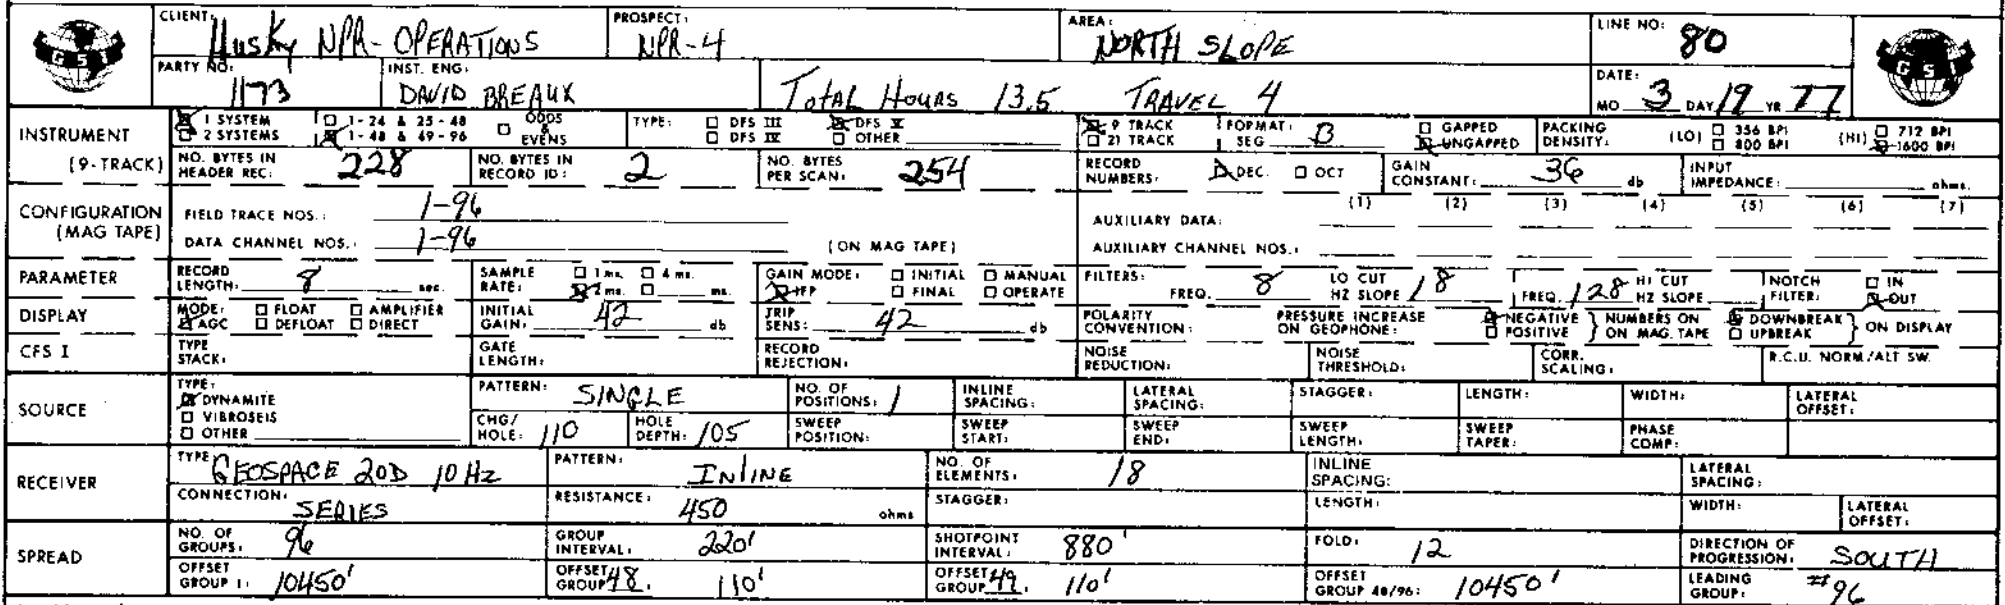 CLIENT: Husky NPR- OPERATIONS PROSPECT: NPR-4 AREA: NORTH SLOPE LINE NO: 80
GSI GSI
PARTY NO: 1173 INST. ENG: DAVID BREAUX Total Hours 13.5 TRAVEL 4 DATE: MO 3 DAY 19 YR 77
INSTRUMENT (9-TRACK) 1 SYSTEM 2 SYSTEMS 1-24 & 25-48 1-48 & 49-96 ODDS & EVENS TYPE: DFS III DFS IV DFS V OTHER 9 TRACK 21 TRACK FORMAT: SEG B GAPPED UNGAPPED PACKING DENSITY: (LO) 356 BPI 800 BPI (HI) 712 BPI 1600 BPI
NO. BYTES IN HEADER REC: 228 NO. BYTES IN RECORD ID: 2 NO. BYTES PER SCAN: 254 RECORD NUMBERS: DEC. OCT GAIN CONSTANT: 36 db INPUT IMPEDANCE: ohms.
CONFIGURATION (MAG TAPE) FIELD TRACE NOS.: 1-96 AUXILIARY DATA: (1) (2) (3) (4) (5) (6) (7)
DATA CHANNEL NOS.: 1-96 (ON MAG TAPE) AUXILIARY CHANNEL NOS.:
PARAMETER RECORD LENGTH: 8 sec. SAMPLE RATE: 1 ms. 4 ms. 2 ms. ms. GAIN MODE: INITIAL MANUAL IFP FINAL OPERATE FILTERS: FREQ. 8 LO CUT HZ SLOPE 18 FREQ. 128 HI CUT HZ SLOPE NOTCH FILTER: IN OUT
DISPLAY MODE: FLOAT AMPLIFIER AGC DEFLOAT DIRECT INITIAL GAIN: 42 db TRIP SENS: 42 db POLARITY CONVENTION: PRESSURE INCREASE ON GEOPHONE: NEGATIVE POSITIVE NUMBERS ON ON MAG. TAPE DOWNBREAK UPBREAK ON DISPLAY
CFS I TYPE STACK: GATE LENGTH: RECORD REJECTION: NOISE REDUCTION: NOISE THRESHOLD: CORR. SCALING: R.C.U. NORM/ALT SW.
SOURCE TYPE: DYNAMITE VIBROSEIS OTHER PATTERN: SINGLE NO. OF POSITIONS: 1 INLINE SPACING: LATERAL SPACING: STAGGER: LENGTH: WIDTH: LATERAL OFFSET:
CHG/HOLE: 110 HOLE DEPTH: 105 SWEEP POSITION: SWEEP START: SWEEP END: SWEEP LENGTH: SWEEP TAPER: PHASE COMP:
RECEIVER TYPE GEOSPACE 20D 10 Hz PATTERN: INLINE NO. OF ELEMENTS: 18 INLINE SPACING: LATERAL SPACING:
CONNECTION: SERIES RESISTANCE: 450 ohms STAGGER: LENGTH: WIDTH: LATERAL OFFSET:
SPREAD NO. OF GROUPS: 96 GROUP INTERVAL: 220' SHOTPOINT INTERVAL: 880' FOLD: 12 DIRECTION OF PROGRESSION: SOUTH
OFFSET GROUP 1: 10450' OFFSET GROUP 48: 110' OFFSET GROUP 49: 110' OFFSET GROUP 48/96: 10450' LEADING GROUP: #96